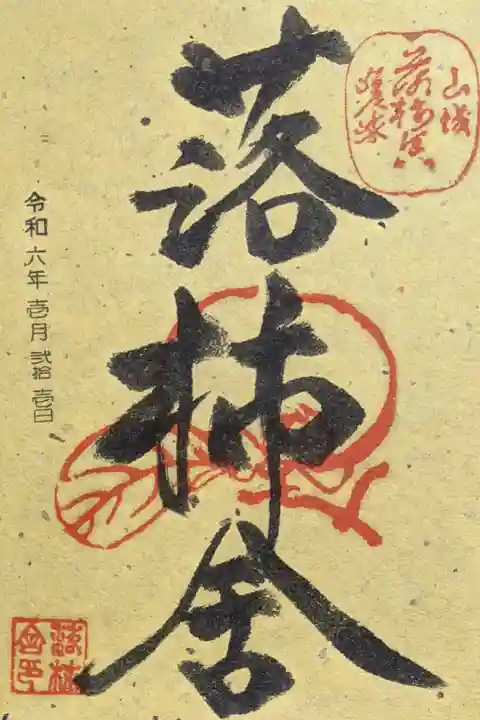 山城
落柿舎
落柿舎
令和六年壱月弐拾壱日
落柿
舎印